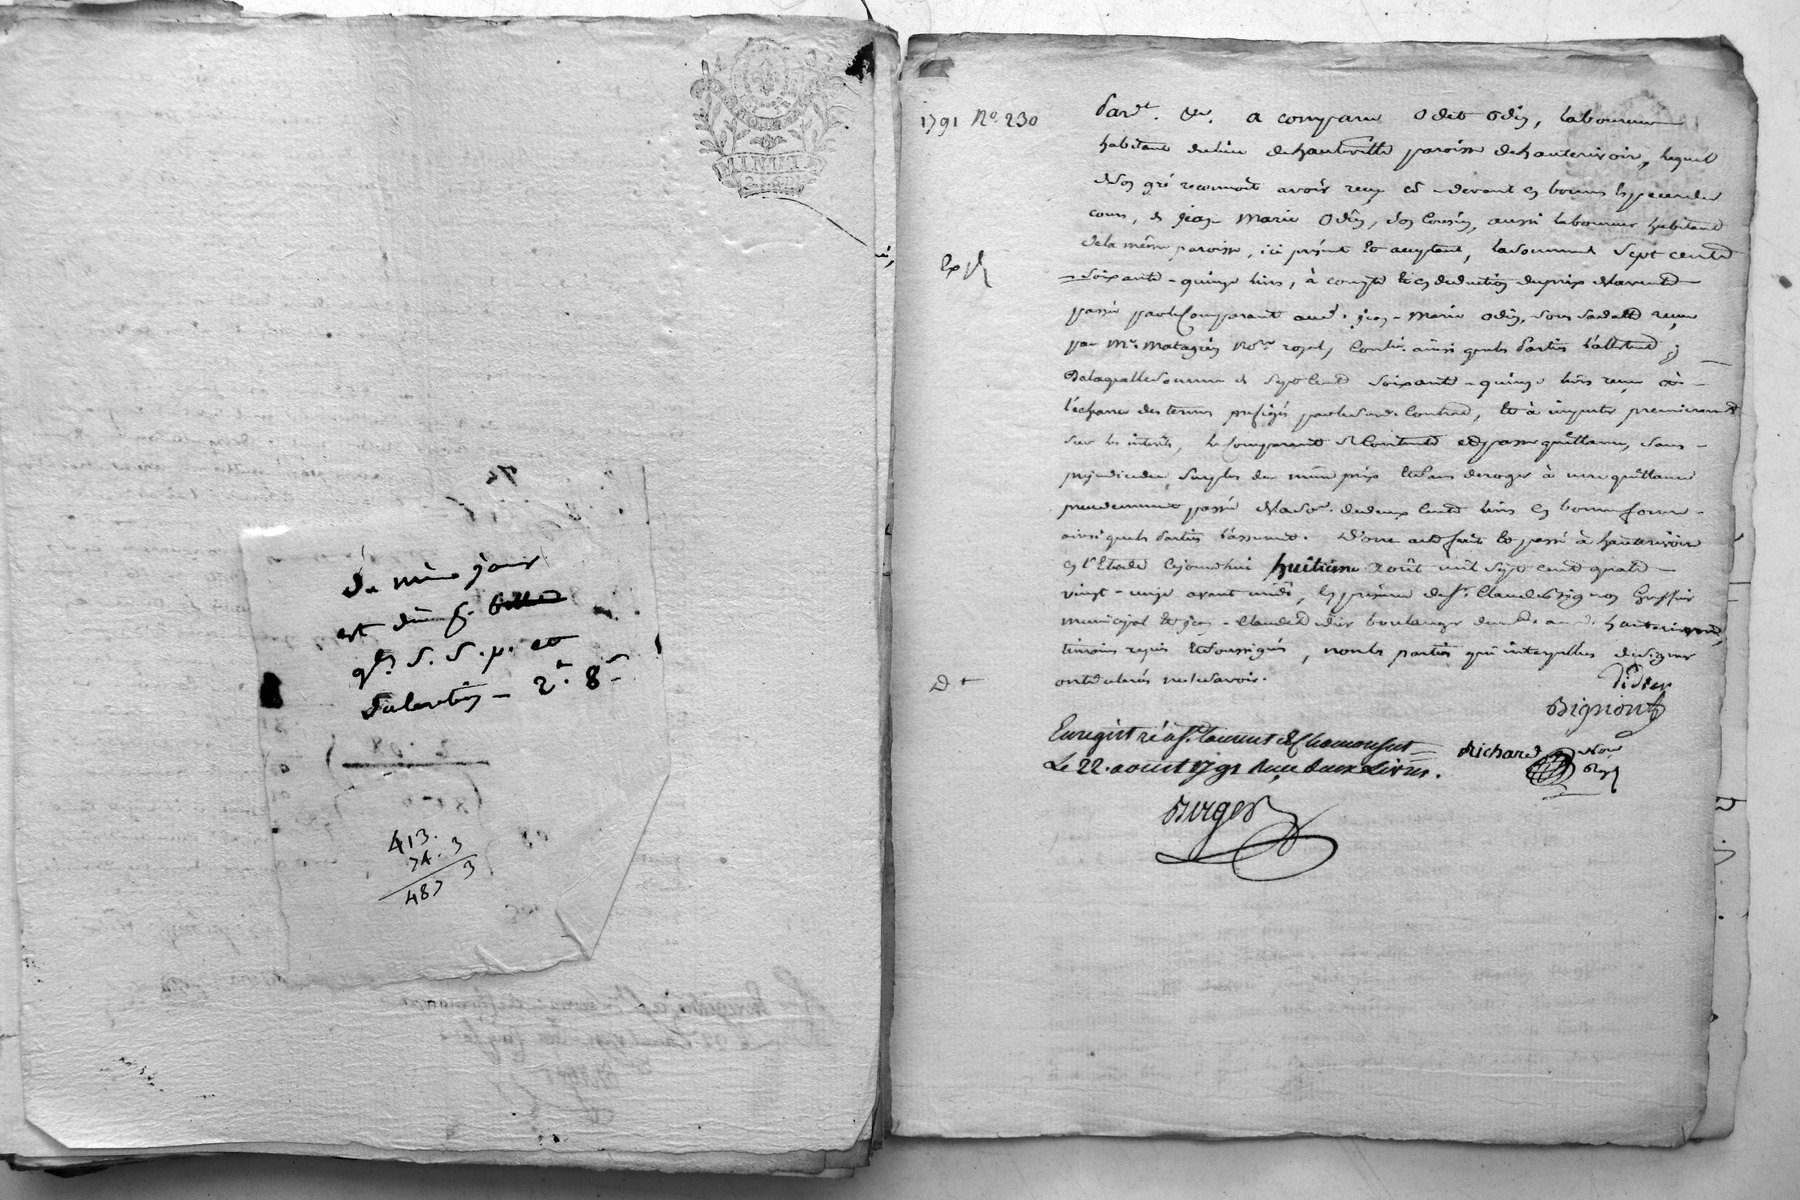 MINUTE
du même jour
est dim. f. billet
qb. S. S. p. et
Valentin - 2. 8
413.
74. 3
487 3
1791 No. 230
Pard. &c. a comparu Odet Odin, laboureur
habitant du lieu de hauteville paroisse de hauterivoir, lequel
de son gré reconnoit avoir reçu ci-devant en bonnes especes du
cours, de jean Marie Odin, son Cousin, aussi laboureur habitant
de la même paroisse, ici présent et acceptant, la somme de Sept cents
Expé
soixante-quinze livres, à compte et en deduction du prix de la vente
passée par le Comparant aud. jean-Marie Odin, sous sa date reçue
par Me. Matagrin Nore. royal, Contle. ainsi que les parties l'attestent ;
De laquelle somme de Sept Cents Soixante-quinze livres reçue à
l'échance des termes prefigés par le susd. Contrat, et à imputer premierement
sur les interêts, le Comparant se Contente et en passe quittance, sans
préjudice du surplus du même prix et sans deroger à une quittance
precedemment passée de la So. de deux Cents livres en bonne forme
ainsi que les parties l'assurent. Dont acte fait et passé à hauterivoire
en l'Etude cejourdhui huitieme Août mil Sept cents quatre
vingt-onze avant midi, En présence de Sr. Claude Bignon Greffier
municipal et jean-Claude Didier boulanger dem. and. hauterivoire,
témoins requis et soussignés, non les parties qui interpellées de signer
Dt
ont declaré ne le savoir.
Didier
Bignon
Enregistré à St. Laurent de Chamousset
Le 22. aoust 1791 Reçu deux Livres.
Richard Nore
Royl
Burger